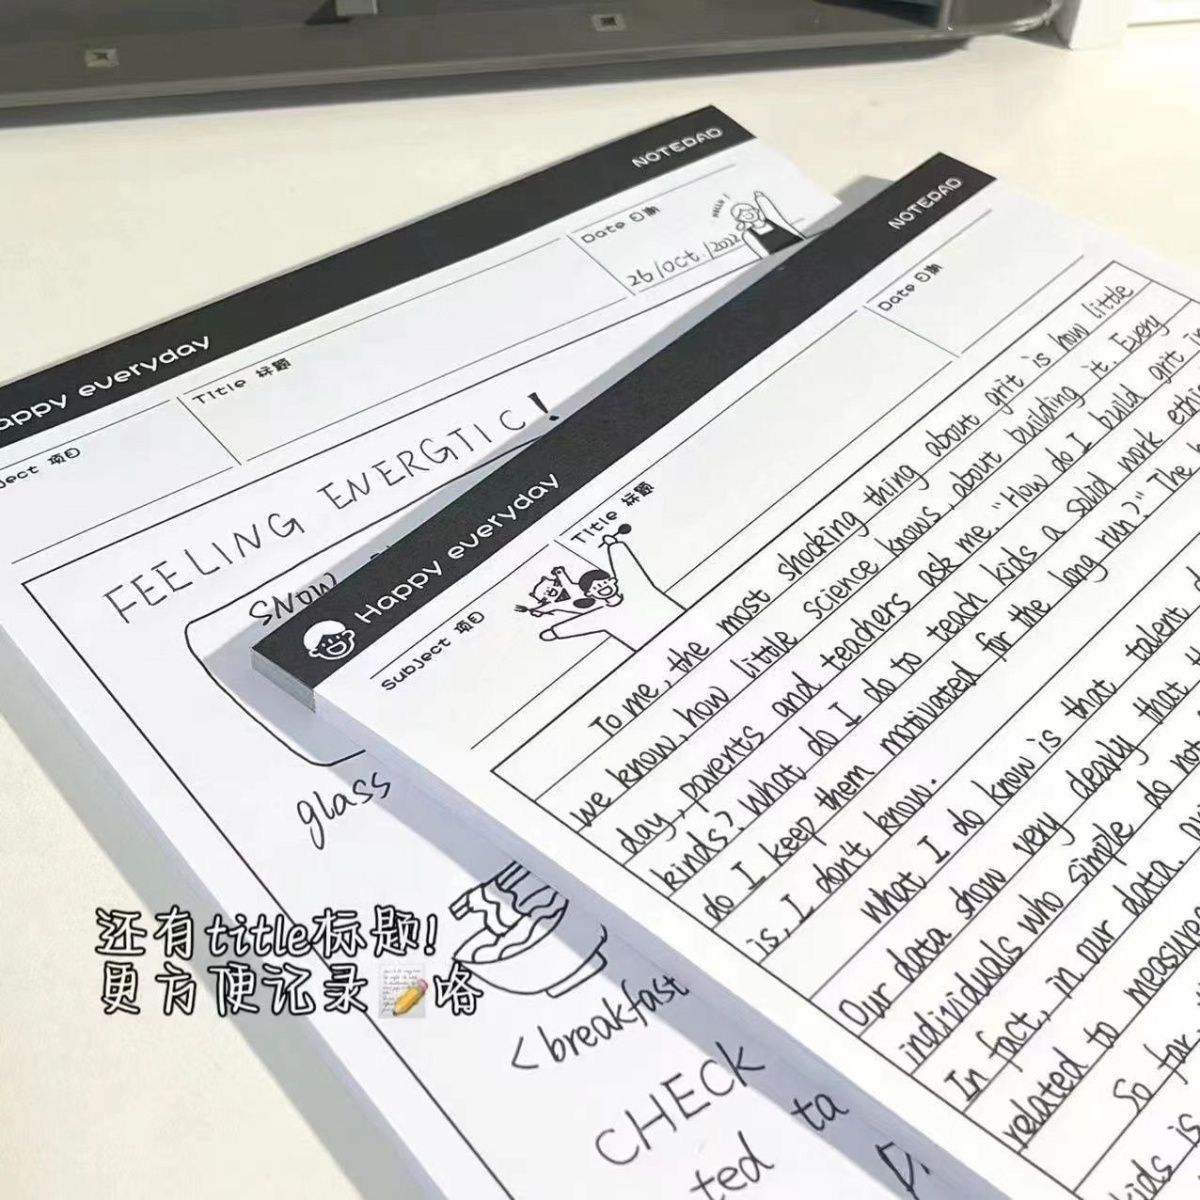 NOTEDAD
Happy everyday
Date 日期
26/Oct./2022
HELLO!
Title 标题
项目
FEELING ENERGTIC!
SNOW
glass
<breakfast
CHECK
ted
ta
D.
NOTEDAD
Happy everyday
Date 日期
Title 标题
Subject 项目
To me, the most shocking thing about grit is how little
we know, how little science knows, about building it. Every
day, parents and teachers ask me. "How do I build grit in
kinds? What do I do to teach kids a solid work ethic
do I keep them motivated for the long run?" The
is, I don't know.
What I do know is that talent
Our data show very clearly that
individuals who simple do not
In fact, in our data
related to measure
So far,
kids is
还有title标题!
更方便记录咯